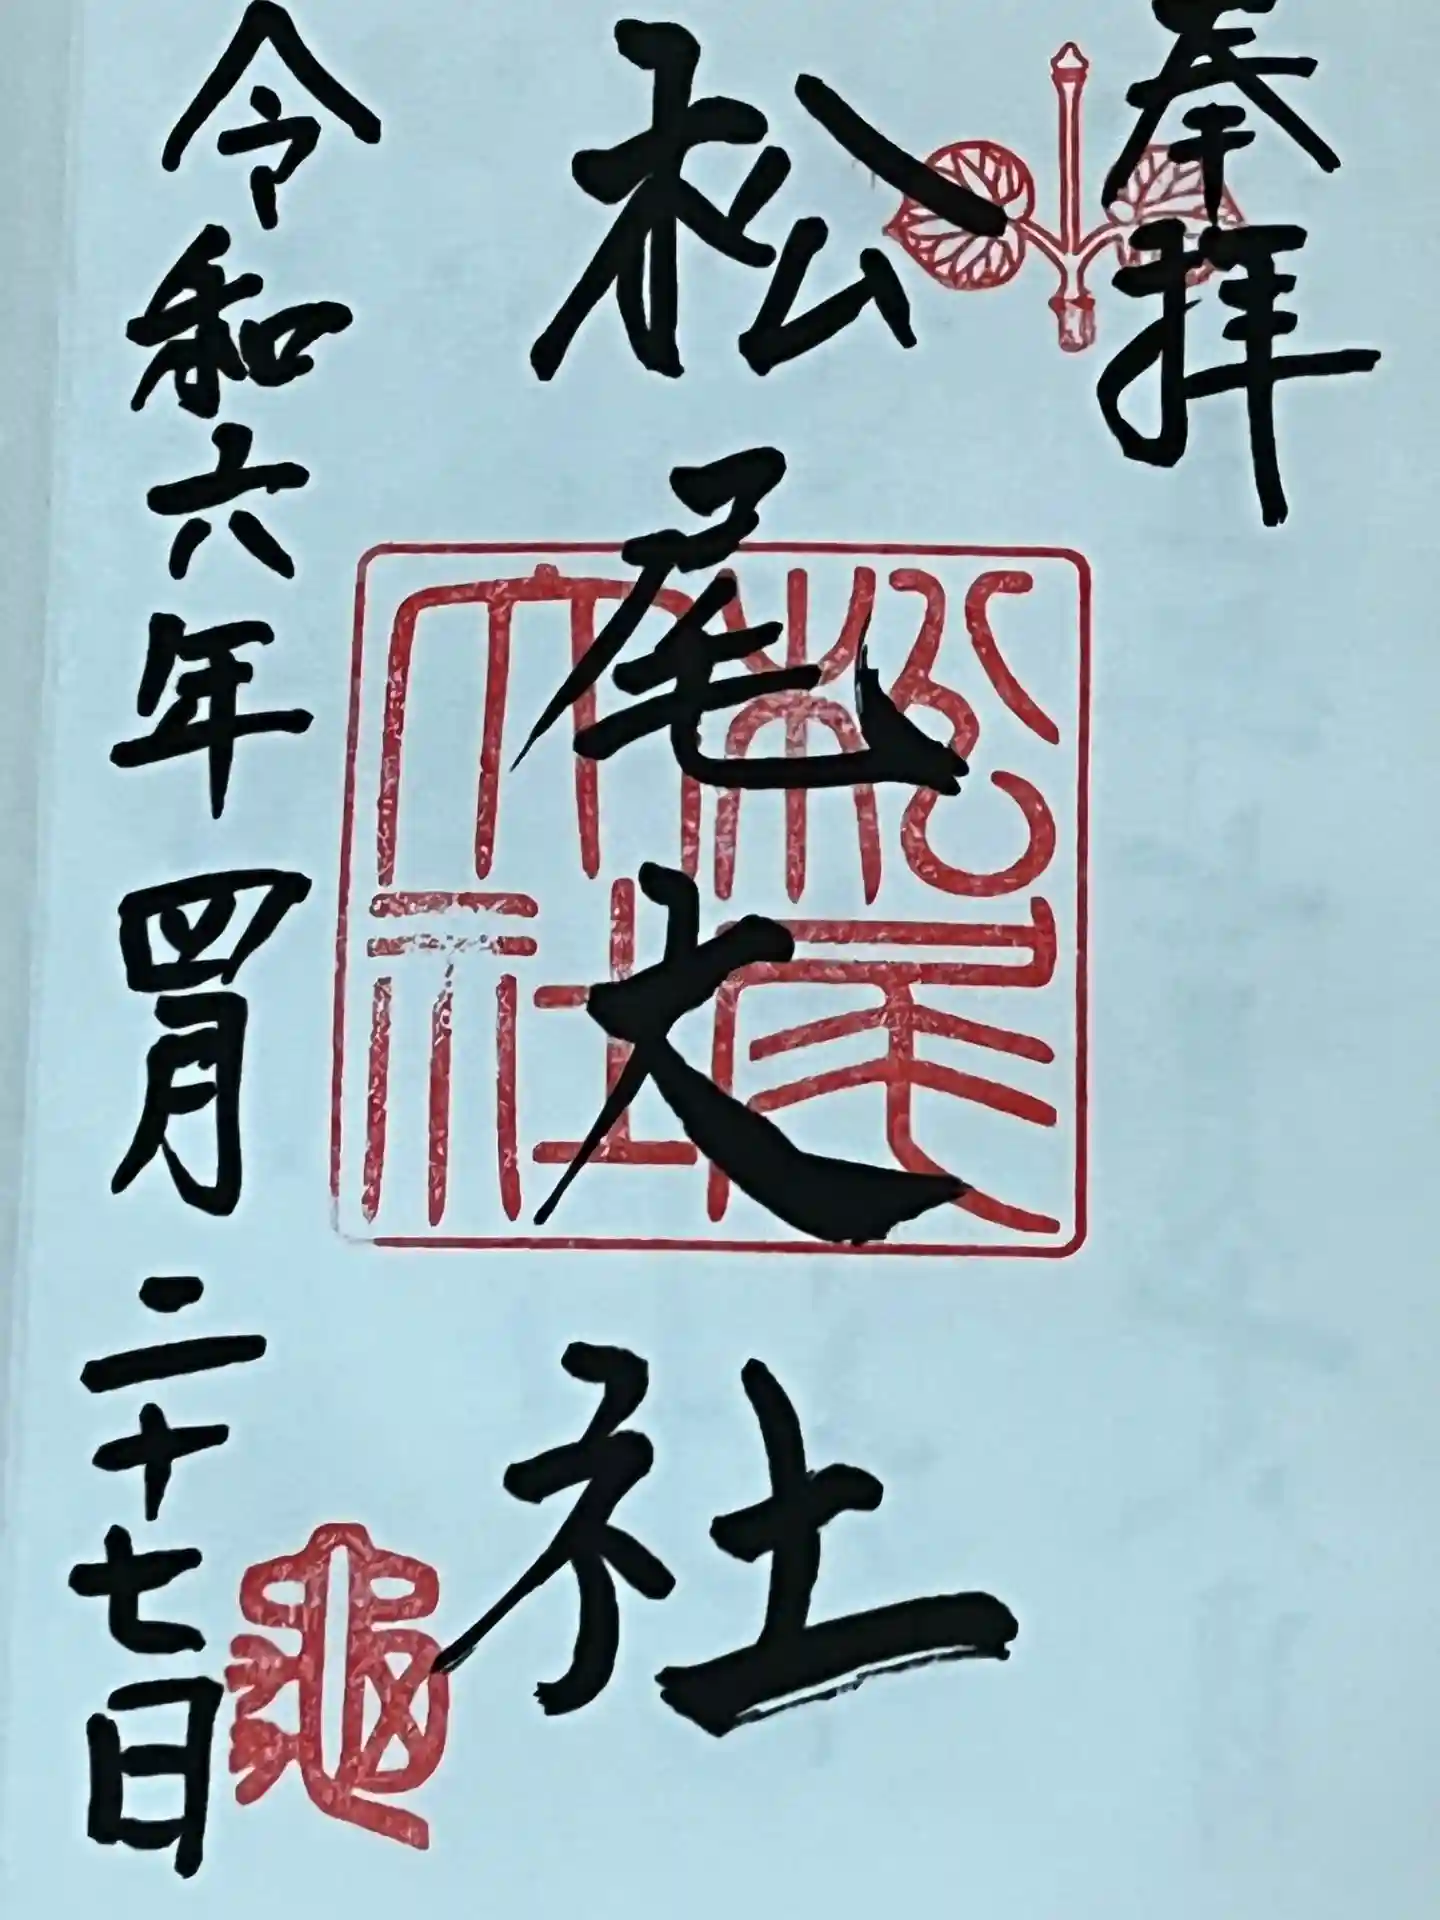 奉拝
松尾大社
松尾大社
令和六年四月二十七日
龜